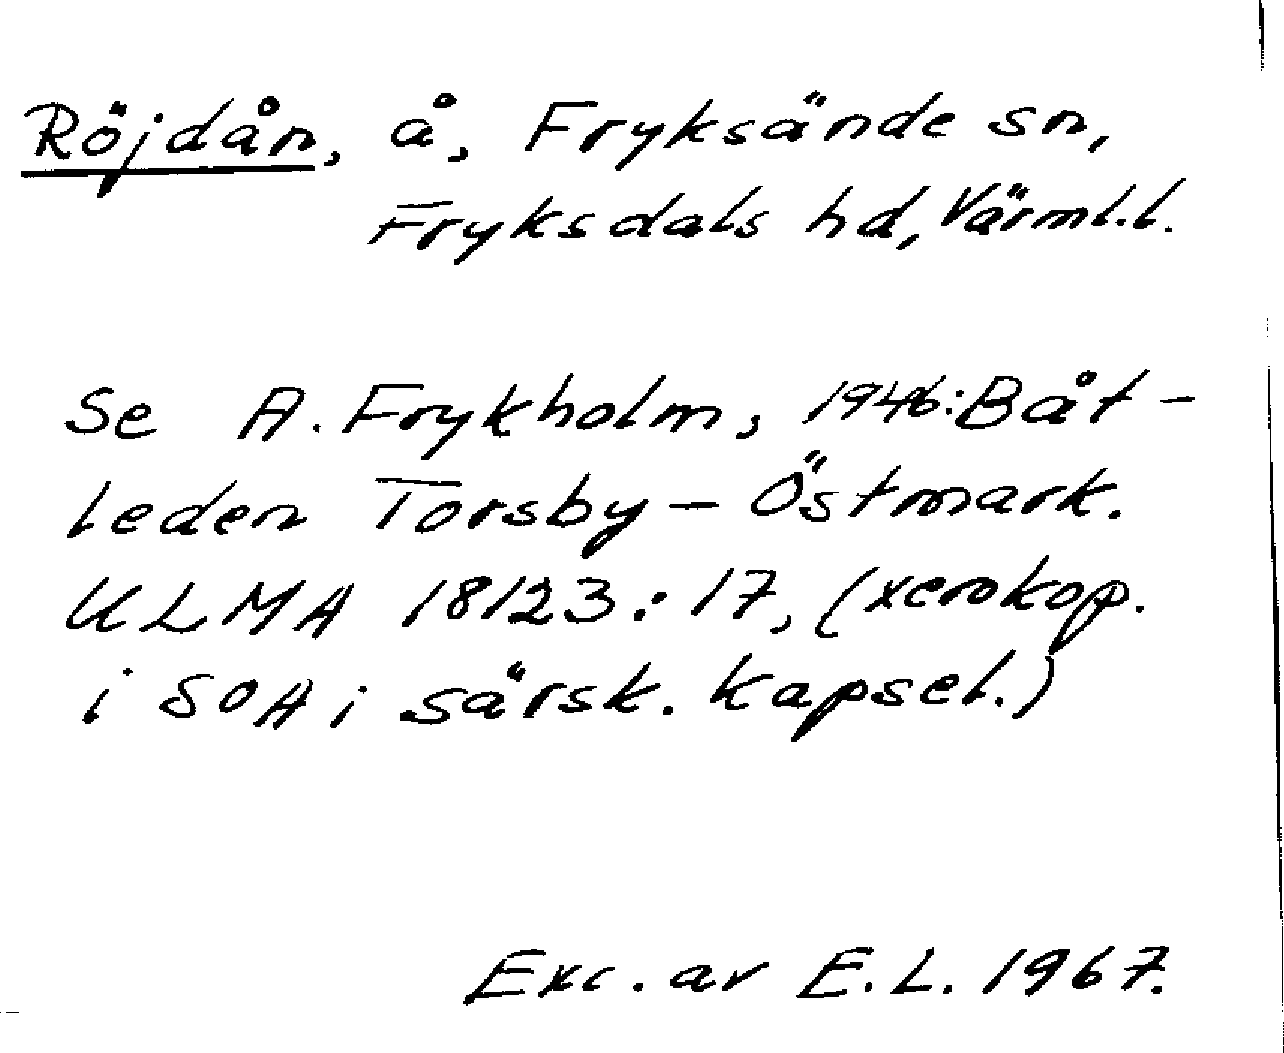 Röjdån, å, Fryksände sn,
Fryksdals hd, Värml.l.
Se A. Frykholm, 1946: Båt-
leden Torsby – Östmark.
ULMA 18123:17, (xerokop.
i SOA i särsk. kapsel.)
Exc. av E.L. 1967.